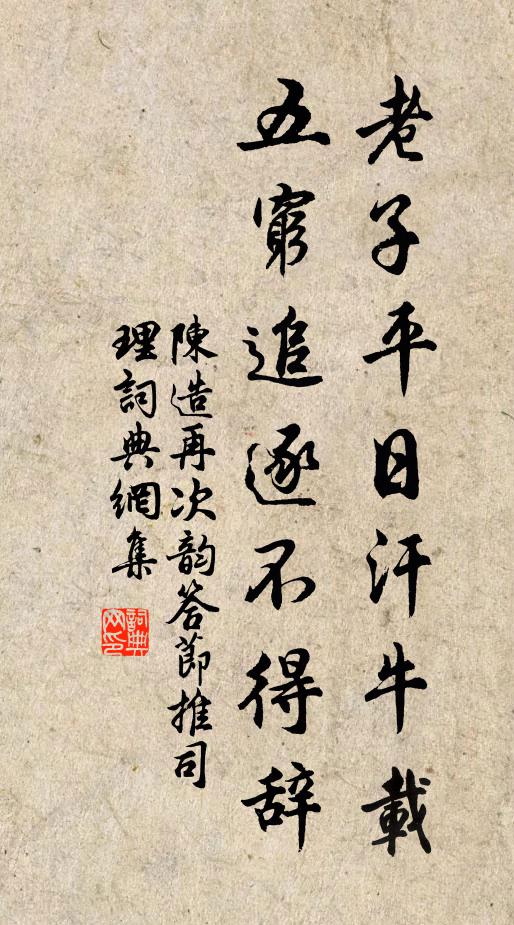 老子平日汗牛載
五窮追逐不得辞
陳造再次韵答節推司
理詞典網集
詞典
网印